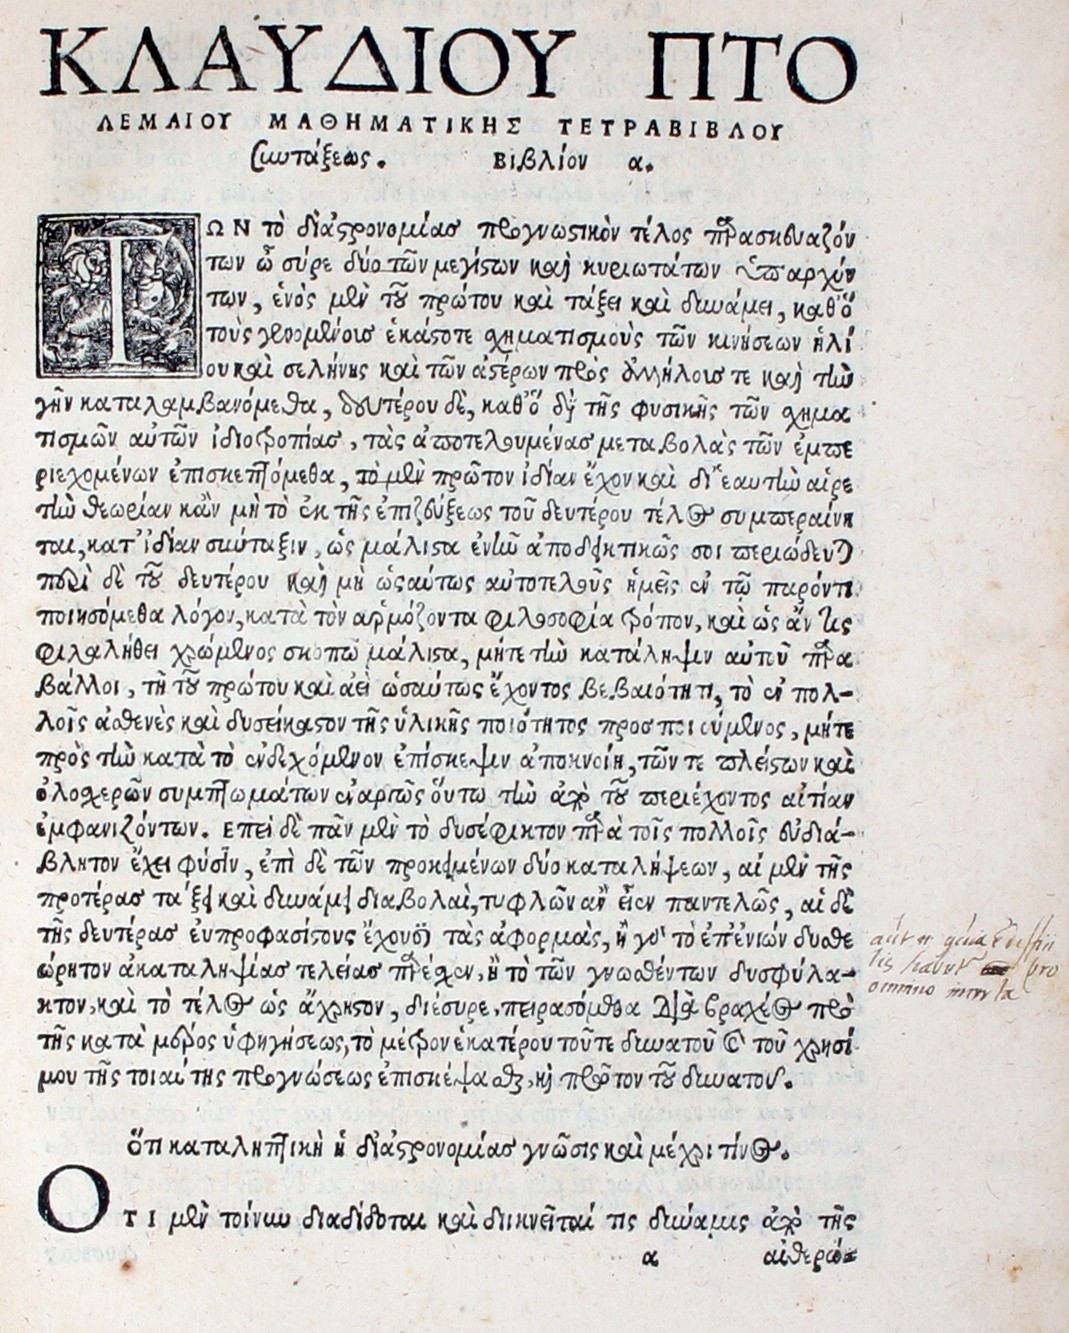 ΚΛΑΥΔΙΟΥ ΠΤΟ
ΛΕΜΑΙΟΥ ΜΑΘΗΜΑΤΙΚΗΣ ΤΕΤΡΑΒΙΒΛΟΥ
Συντάξεως. Βιβλίον α.
ΤΩΝ τὸ δι᾽ ἀστρονομίας προγνωστικὸν τέλος παρασκευαζόν
των ὦ σύρε δύο τῶν μεγίστων καὶ κυριωτάτων ὑπαρχόν
των, ἑνὸς μὲν τοῦ πρώτου καὶ τάξει καὶ δυνάμει, καθ᾽ ὃ
τοὺς γινομένους ἑκάστοτε σχηματισμοὺς τῶν κινήσεων ἡλί
ου καὶ σελήνης καὶ τῶν ἀστέρων πρὸς ἀλλήλους τε καὶ τὴν
γῆν καταλαμβανόμεθα, δευτέρου δὲ, καθ᾽ ὃ δὴ τῆς φυσικῆς τῶν σχημα
τισμῶν αὐτῶν ἰδιοτροπίας, τὰς ἀποτελουμένας μεταβολὰς τῶν ἐμπε
ριεχομένων ἐπισκεπτόμεθα, τὸ μὲν πρῶτον ἰδίαν ἔχον καὶ δι᾽ ἑαυτὴν αἱρε
τὴν θεωρίαν κᾂν μὴ τὸ ἐκ τῆς ἐπιζεύξεως τοῦ δευτέρου τέλος συμπεραίνη
ται, κατ᾽ ἰδίαν σύνταξιν, ὡς μάλιστα ἐνῆν ἀποδεικτικῶς σοι περιώδευται
περὶ δὲ τοῦ δευτέρου καὶ μὴ ὡσαύτως αὐτοτελοῦς ἡμεῖς ἐν τῷ παρόντι
ποιησόμεθα λόγον, κατὰ τὸν ἁρμόζοντα φιλοσοφία τρόπον, καὶ ὡς ἄν τις
φιλαλήθει χρώμενος σκοπῷ μάλιστα, μήτε τὴν κατάληψιν αὐτοῦ παρα
βάλλοι, τῇ τοῦ πρώτου καὶ ἀεὶ ὡσαύτως ἔχοντος βεβαιότητι, τὸ ἐν πολ-
λοῖς ἀσθενὲς καὶ δυσείκαστον τῆς ὑλικῆς ποιότητος προσποιούμενος, μήτε
πρὸς τὴν κατὰ τὸ ἐνδεχόμενον ἐπίσκεψιν ἀποκνοίη, τῶν τε πλείστων καὶ
ὁλοσχερῶν συμπτωμάτων ἐναργῶς οὕτω τὴν ἀπὸ τοῦ περιέχοντος αἰτίαν
ἐμφανιζόντων. Επεὶ δὲ πᾶν μὲν τὸ δυσέφικτον παρὰ τοῖς πολλοῖς εὐδιά-
βλητον ἔχει φύσιν, ἐπὶ δὲ τῶν προκειμένων δύο καταλήψεων, αἱ μὲν τῆς
προτέρας τάξει καὶ δυνάμει διαβολαὶ, τυφλῶν ἂν εἶεν παντελῶς, αἱ δὲ
τῆς δευτέρας εὐπροφασίστους ἔχουσι τὰς ἀφορμὰς, ἢ γὰρ τὸ ἐπ᾽ ἐνίων δυσθε
ώρητον ἀκαταληψίας τελείας παρέσχεν, ἢ τὸ τῶν γνωσθέντων δυσφύλα-
κτον, καὶ τὸ τέλος ὡς ἄχρηστον, διέσυρε, πειρασόμεθα διὰ βραχέος πρὸ
τῆς κατὰ μέρος ὑφηγήσεως, τὸ μέτρον ἑκατέρου τοῦτε δυνατοῦ καὶ τοῦ χρησί
μου τῆς τοιαύτης προγνώσεως ἐπισκέψασθαι, καὶ πρῶτον τοῦ δυνατοῦ.
Ὅτι καταληπτικὴ ἡ δι᾽ ἀστρονομίας γνῶσις καὶ μέχρι τίνος.
ΟΤΙ μὲν τοίνυν διαδίδοται καὶ διικνεῖταί τις δύναμις ἀπὸ τῆς
α αἰθερώ-